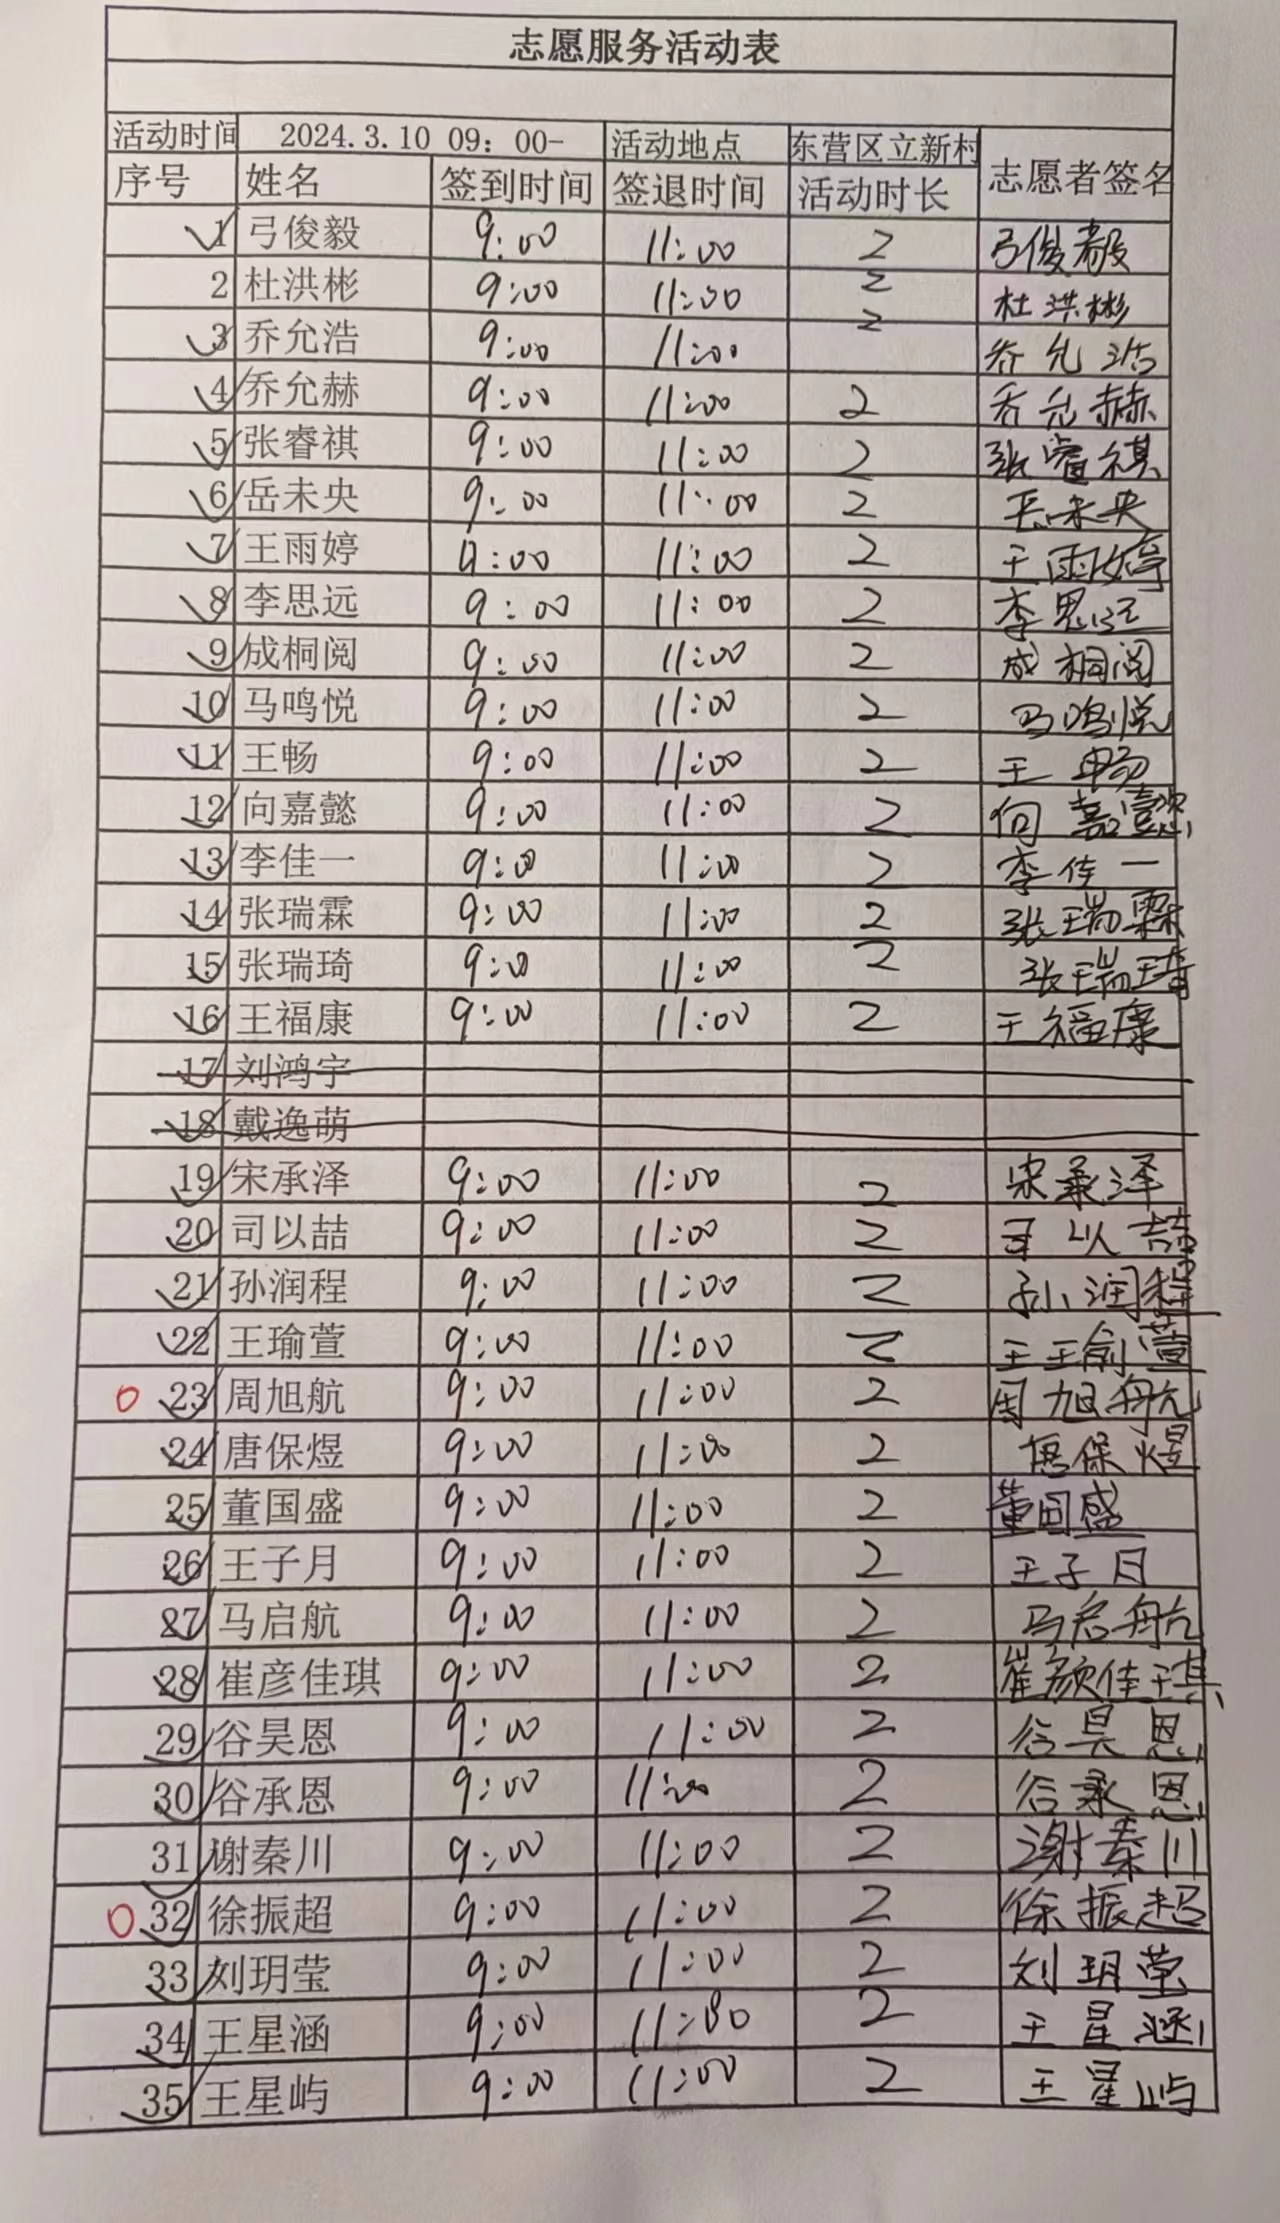 志愿服务活动表
活动时间 2024.3.10 09：00- 活动地点 东营区立新村 志愿者签名
序号 姓名 签到时间 签退时间 活动时长
1 弓俊毅 9:00 11:00 2 弓俊毅
2 杜洪彬 9:00 11:00 2 杜洪彬
3 乔允浩 9:00 11:00 2 乔允浩
4 乔允赫 9:00 11:00 2 乔允赫
5 张睿祺 9:00 11:00 2 张睿祺
6 岳未央 9:00 11:00 2 岳未央
7 王雨婷 9:00 11:00 2 王雨婷
8 李思远 9:00 11:00 2 李思远
9 成桐阅 9:00 11:00 2 成桐阅
10 马鸣悦 9:00 11:00 2 马鸣悦
11 王畅 9:00 11:00 2 王畅
12 向嘉懿 9:00 11:00 2 向嘉懿
13 李佳一 9:00 11:00 2 李佳一
14 张瑞霖 9:00 11:00 2 张瑞霖
15 张瑞琦 9:00 11:00 2 张瑞琦
16 王福康 9:00 11:00 2 王福康
17 刘鸿宇
18 戴逸萌
19 宋承泽 9:00 11:00 2 宋承泽
20 司以喆 9:00 11:00 2 司以喆
21 孙润程 9:00 11:00 2 孙润程
22 王瑜萱 9:00 11:00 2 王瑜萱
23 周旭航 9:00 11:00 2 周旭航
24 唐保煜 9:00 11:00 2 唐保煜
25 董国盛 9:00 11:00 2 董国盛
26 王子月 9:00 11:00 2 王子月
27 马启航 9:00 11:00 2 马启航
28 崔彦佳琪 9:00 11:00 2 崔颜佳琪
29 谷昊恩 9:00 11:00 2 谷昊恩
30 谷承恩 9:00 11:00 2 谷承恩
31 谢秦川 9:00 11:00 2 谢秦川
32 徐振超 9:00 11:00 2 徐振超
33 刘玥莹 9:00 11:00 2 刘玥莹
34 王星涵 9:00 11:00 2 王星涵
35 王星屿 9:00 11:00 2 王星屿